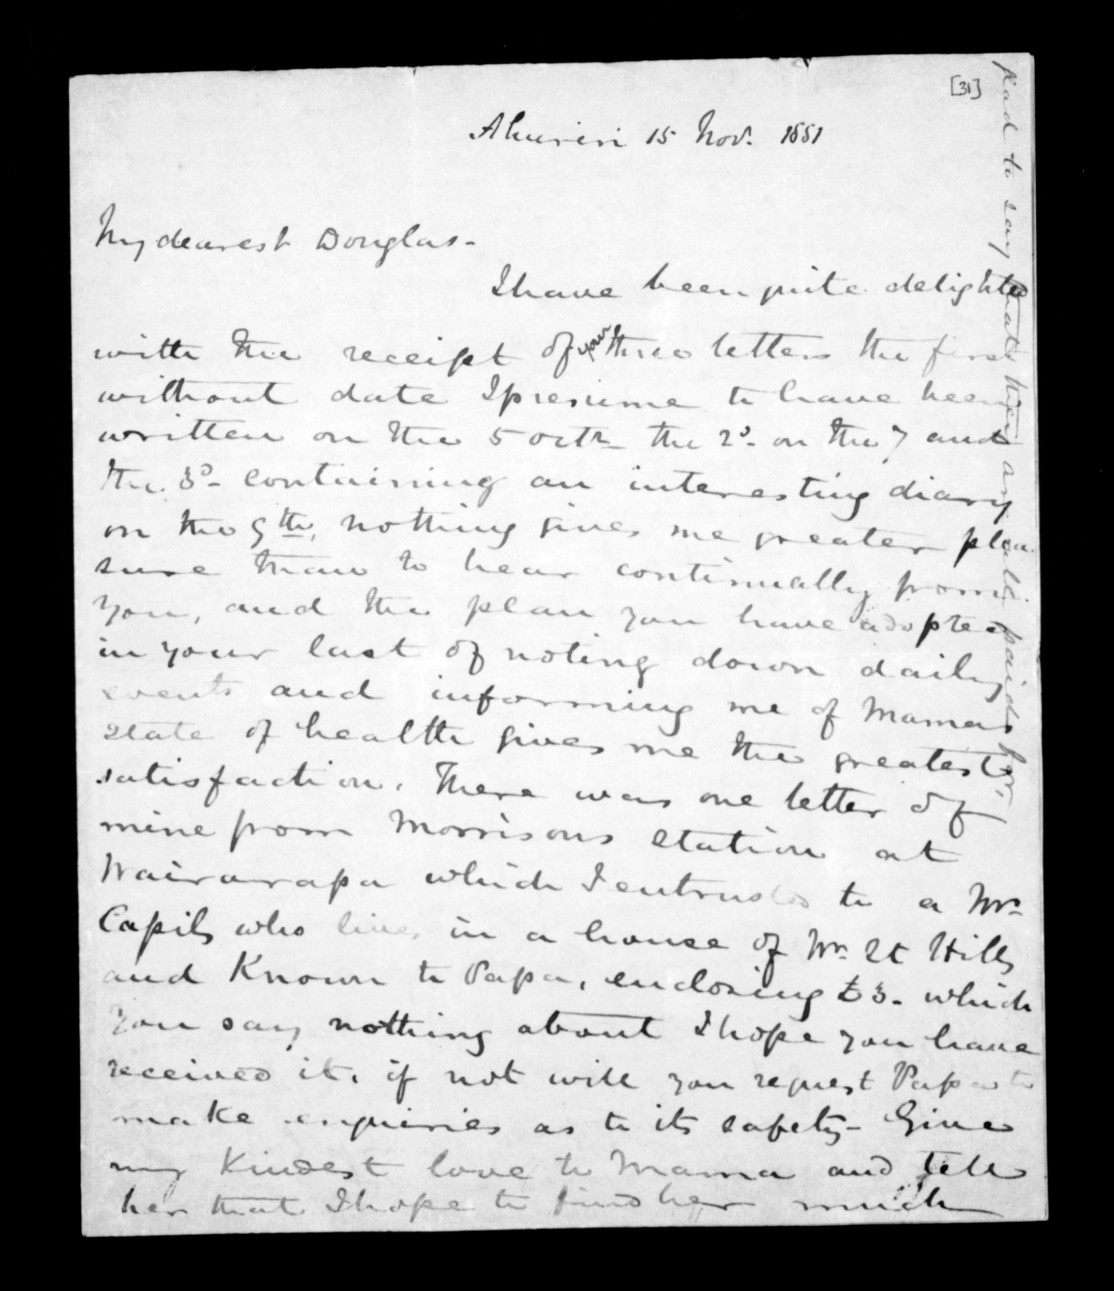 [31]
Ahuriri 15 Nov. 1851
My dearest Douglas -
I have been quite delighted
with the receipt of your three letters the first
without date I presume to have been
written on the 5 octr. the 2d. on the 7 and
the 3d. containing an interesting diary
on the 9th, nothing gives me greater plea
sure than to hear continually from
you, and the plan you have adopted
in your last of noting down daily
events and informing me of Mamas
state of health gives me the greatest
satisfaction. There was one letter of
mine from Morrisons station at
Wairarapa which I entrusted to a Mr.
who lives in a house of Mr. St Hills
and Known to Papa, enclosing £3 - which
you say nothing about I hope you have
received it, if not will you request Papa to
make enquiries as to its safety - Give
my Kindest love to Mama and tell
her that I hope to find her much
to say that they are all paid for,